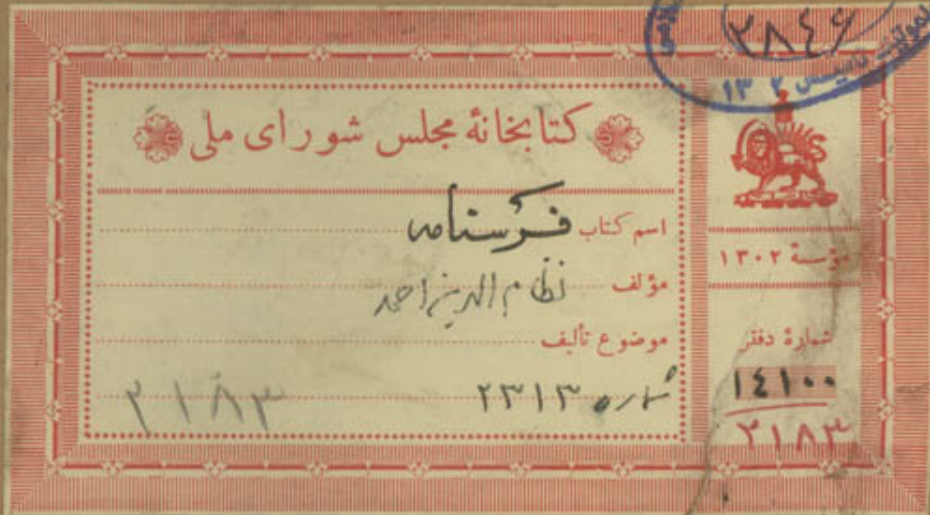 ۲۸۴۶
تأسیس ۱۳۰۲
کتابخانهٔ مجلس شورای ملی
اسم کتاب فرسنامه
مؤلف نظام الدین احمد
موضوع تألیف
شماره ۲۳۱۳
۲۱۸۳
مؤسسهٔ ۱۳۰۲
شمارهٔ دفتر
۱۴۱۰۰
۲۱۸۳